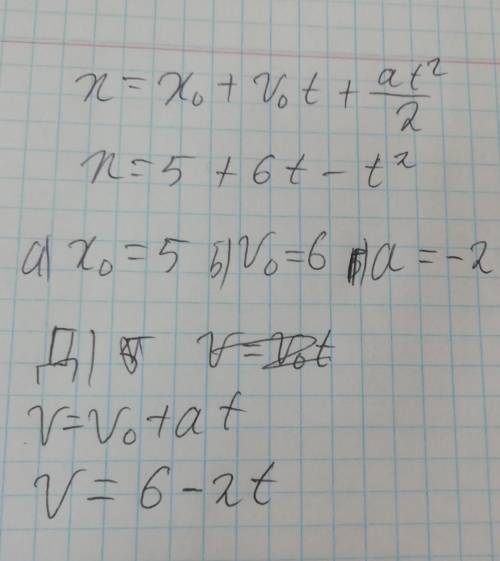 x = x₀ + v₀t + at²/2
x = 5 + 6t - t²
а) x₀ = 5 б) v₀ = 6 в) a = -2
Д)
v = v₀ + at
v = 6 - 2t